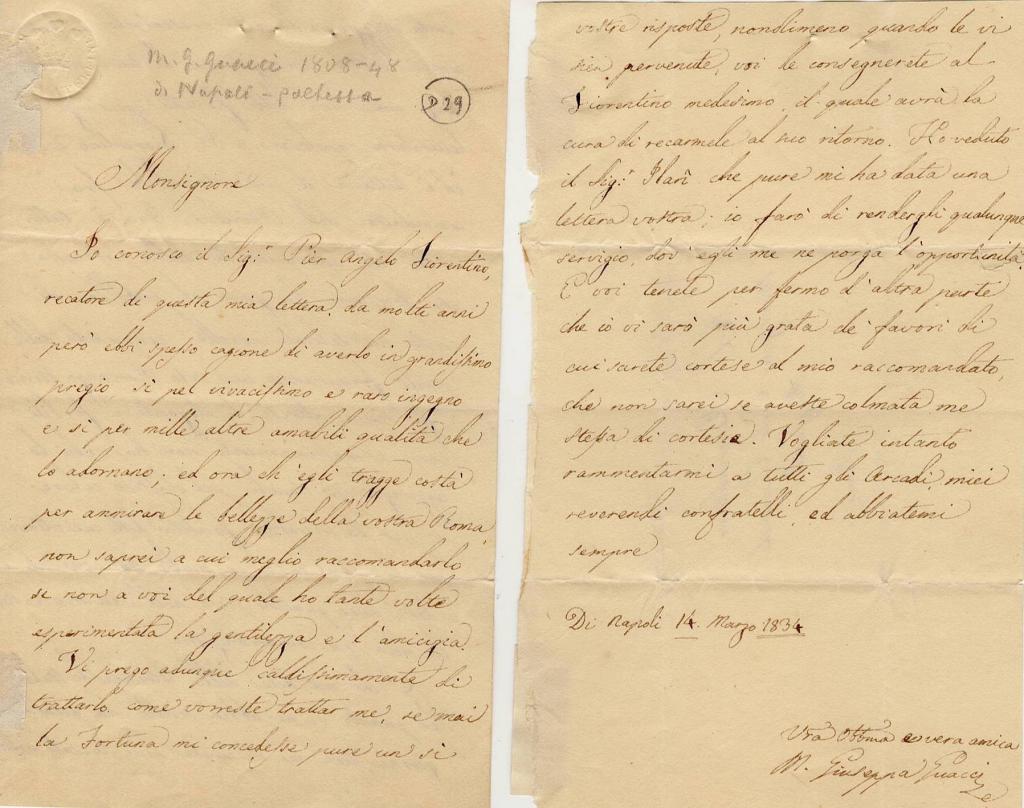 M. G. Guacci 1808-48
di Napoli - poetessa
D 29
Monsignore
Io conosco il Sig.r Pier Angelo Fiorentino,
recatore di questa mia lettera, da molti anni
però ebbi spesso cagione di averlo in grandissimo
pregio sì pel vivacissimo e raro ingegno
e sì per mille altre amabili qualità che
lo adornano; ed ora ch'egli tragge costà
per ammirare le bellezze della vostra Roma,
non saprei a cui meglio raccomandarlo
se non a voi del quale ho tante volte
esperimentata la gentilezza e l'amicizia.
Vi prego adunque caldissimamente di
trattarlo come vorreste trattar me, se mai
la Fortuna mi concedesse pure un sì
vostre risposte, nondimeno quando le vi
sien pervenute, voi le consegnerete al
Fiorentino medesimo, il quale avrà la
cura di recarmele al suo ritorno. Ho veduto
il Sig.r Ilari che pure mi ha data una
lettera vostra; io farò di renderghi qualunque
servigio, dov'egli me ne porga l'opportunità.
E voi tenete per fermo d'altra parte
che io vi sarò più grata de' favori di
cui sarete cortese al mio raccomandato,
che non sarei se aveste colmata me
stessa di cortesie. Vogliate intanto
rammentarmi a tutti gli Arcadi, miei
reverendi confratelli, ed abbiatemi
sempre
Di Napoli 14 Marzo 1834
Vra obbma e vera amica
M. Giuseppa Guacci